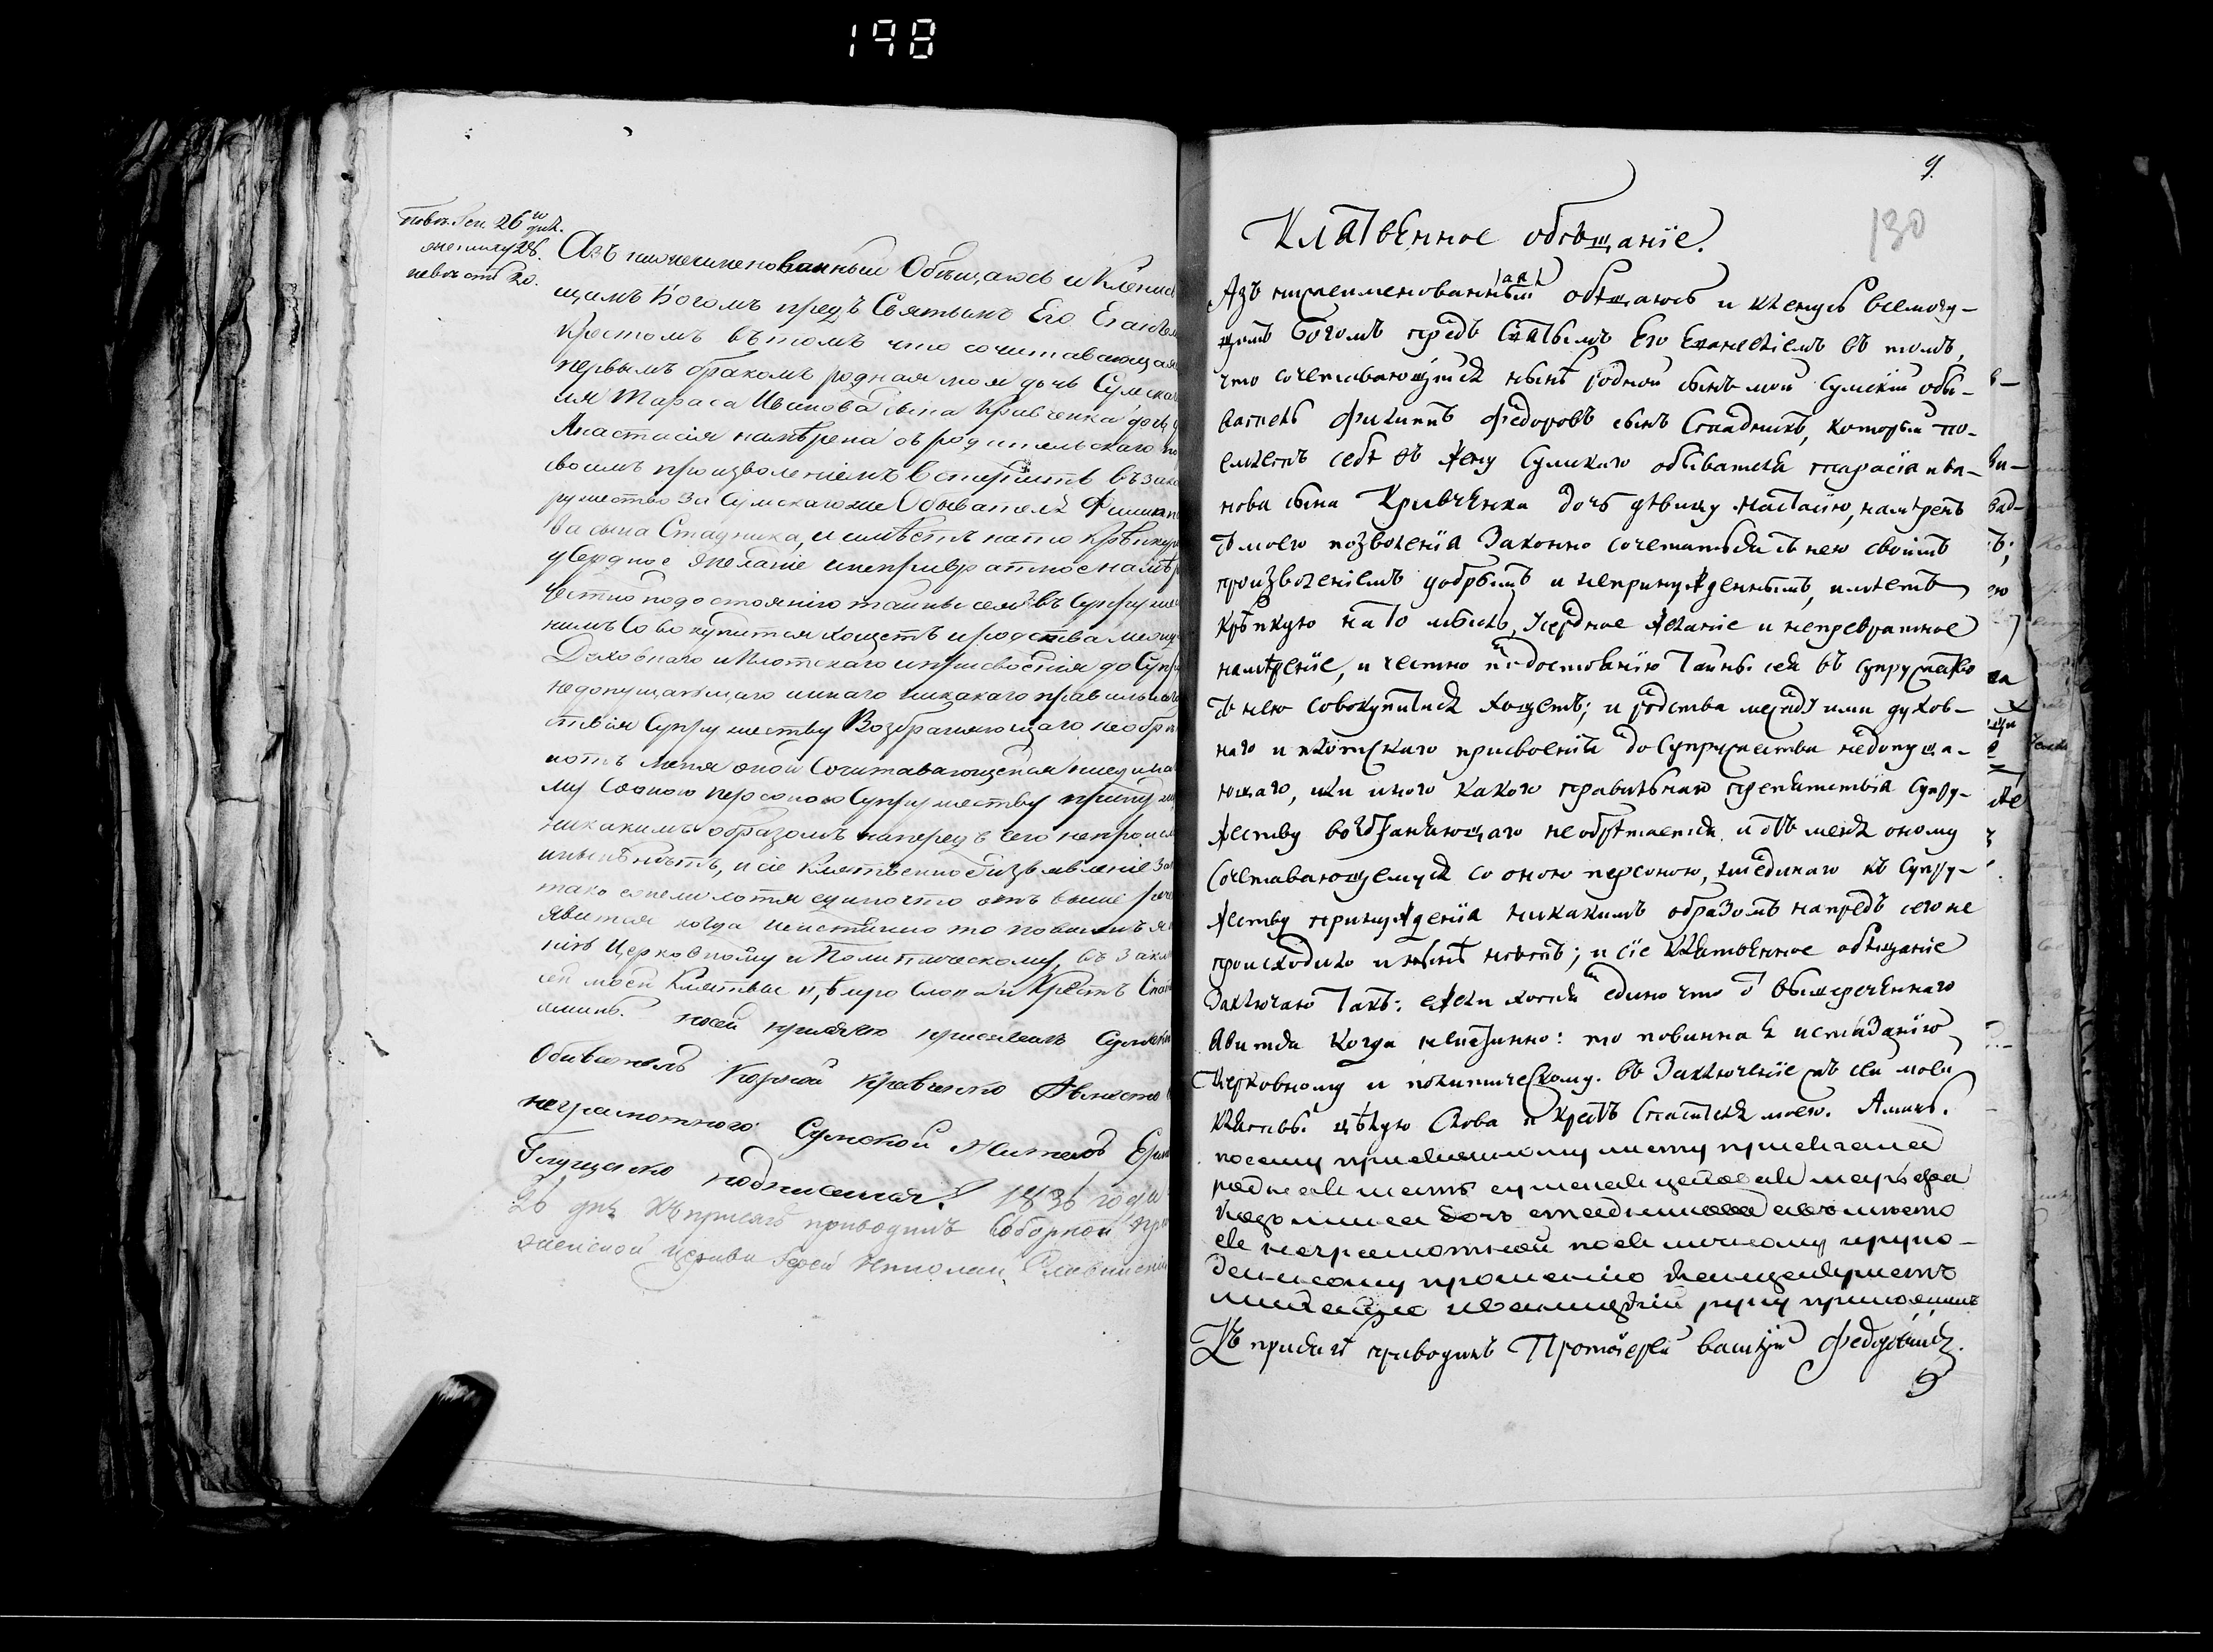 198
повѣн. Ген. 26го дня.
жениху 28.
невѣстѣ 20.
Азъ нижеименованный Обѣщаюсь и Клѣнусь
щимъ Богомъ предъ Святымъ Его Еѵангел
Крестомъ въ томъ что сочитавающая
первымъ бракомъ родная моя дочь Сумска
ля Тараса Иванова сына Кравченка дочь
Анастасія намѣрена съ родительскаго по
своимъ произволеніемъ вступить въ зако
ружество за Сумскагоже Обывателя Филипп
ва сына Стадника, и имѣетъ на то крѣпкую
усердное желаніе инепривратное намѣр
честно подостоянію тайны сея въ Супруже
нимъ Совокупится хощетъ и родства между
Духовнаго и Плотскаго и присвоенія до Супр
недопущающаго иннаго никакаго правильнаго
ствія Супружеству Возбраняющаго необрѣ
иотъ меня оной Сочитавающейся
му Сооною персоною Супружеству принуж
никакимъ образомъ напередъ сего непроисх
инынѣнѣтъ, и сіе Клятвенное Изъявленіе За
тако ежели хотя едино что отъ выше рече
явится когда неистинно то повиненъ я
нію Церковному и Политическому, въ Закл
сей моей Клятвы цѣлую Слова и Крестъ Спа
аминь. посей присягѣ присягалъ Сумски
Обиватель Кравченко Авмѣсто
неграмотного Сумской Житель
Глущенко подписался 1836 года
26 дня Къ присягѣ приводилъ Соборной
женской церкви Іерей Николай Славинскій
9.
130
Клятвенное обѣщаніе.
/ая/
Азъ нижеименованный обѣщаюсь и кленусь всемогу-
щимъ Богомъ предъ Святымъ Его Еѵангеліемъ въ томъ,
что сочетавающійся нынѣ родной сынъ мой Сумскій обы-
ватель Филиппъ Федоровъ сынъ Стадникъ, который по-
емлетъ себѣ въ жену Сумскаго обывателя тарасія ива-
нова сына Кривченка дочь дѣвицу Настасію, намѣренъ
съ моего позволенія Законно сочетаться съ нею своимъ
произволеніемъ добрымъ и непринужденнымъ, имѣетъ
крѣпкую на то мысль, Усердное желаніе и непревратное
намѣреніе, и честно подостоянію Тайны сея въ супружество
съ нею совокупитися хощетъ; и родства между ими духов-
наго и плотскаго присвоенія до Супружества недопуща-
ющаго, или иного какого правильнаго препятствія Супру-
жеству возбраняющаго необрѣтается и отъ меня оному
Сочетавающемуся со оною персоною, къ Супру-
жеству принужденія никакимъ образомъ напредъ сего не
происходило и нынѣ нѣтъ; и сіе Клятвенное обѣщаніе
Заключаю Такъ: ежели хотя едино что ѿ вышереченнаго
Явится Когда неистинно: то повинна я истязанію
Церковному и политическому. въ Заключеніе жъ сей моей
Клятвы цѣлую Слова и Крестъ Спасителя моего. Аминь.
посему присяжному листу присягала
родная мать
авъ мѣсто
ее неграмотной поее личному
прошенію канцеляристъ
руку приложилъ
Къ присягѣ приводилъ Протоіерей Василій Федоровичъ.